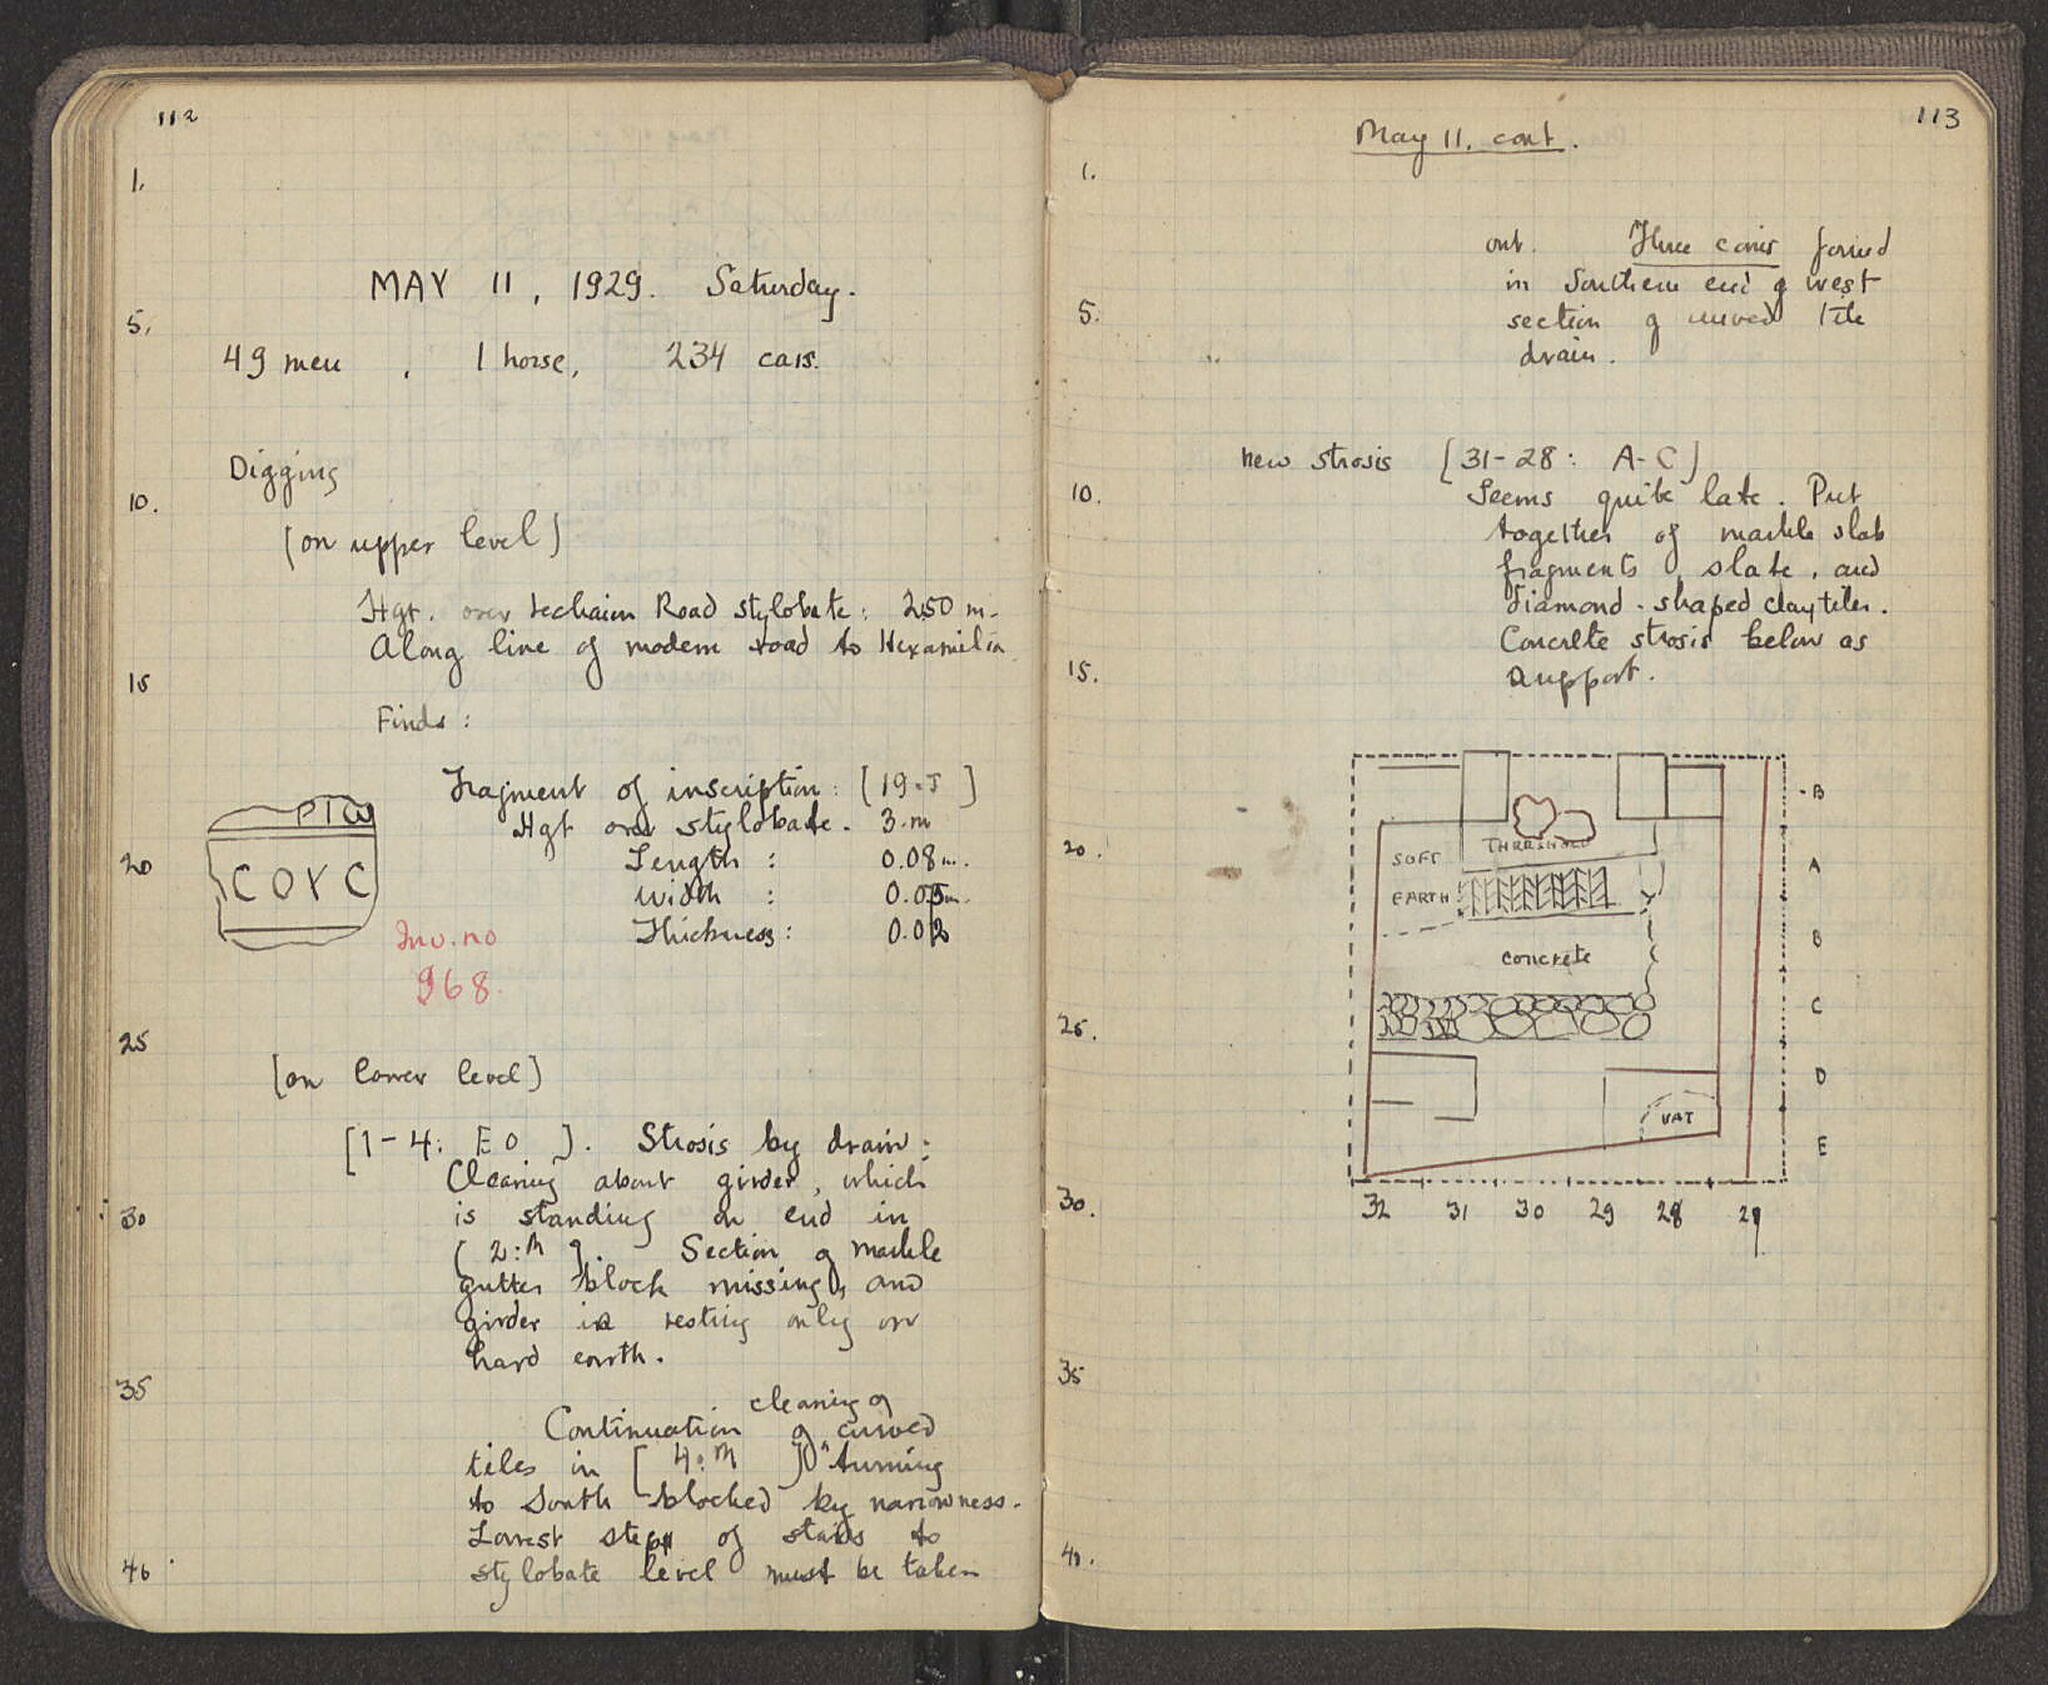 112
1.
MAY 11, 1929. Saturday.
5.
49 men, 1 horse, 234 cars.
Digging
10.
[on upper level]
Hgt. over Lechaion Road stylobate: 2.50 m.
Along line of modern road to Hexamilia
15
Finds:
Fragment of inscription: [19-J]
Hgt over stylobate. 3.m
Length: 0.08m.
Width: 0.05m.
Thickness: 0.02
ΡΤω
20
COYC
Inv. no
968.
25
[on lower level]
[1-4: EO]. Strosis by drain:
Clearing about girder, which
30
is standing on end in
[2:M]. Section of marble
gutter block missing, and
girder is resting only on
hard earth.
35
cleaning of
Continuation of curved
tiles in [4:M] turning
to South blocked by narrowness.
Lowest step of stairs to
40
stylobate level must be taken
113
May 11. cont.
1.
out. Three coins found
in Southern end of west
5.
section of curved tile
drain.
new strosis [31-28: A-C]
10.
Seems quite late. Put
together of marble slab
fragments, slate, and
diamond-shaped clay tiles.
Concrete strosis below as
15.
support.
-B
20.
SOFT THRESHOLD
A
EARTH
B
CONCRETE
C
25.
D
VAT
E
30.
32 31 30 29 28 27
35
40.